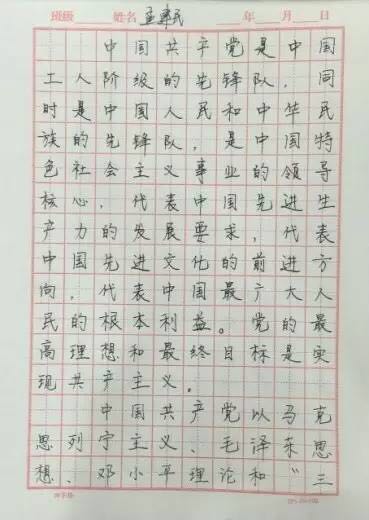 班级 姓名 孟 民 年 月 日
中国共产党是中国
工人阶级的先锋队,同
时是中国人民和中华民
族的先锋队,是中国特
色社会主义事业的领导
核心,代表中国先进生
产力的发展要求,代表
中国先进文化的前进方
向,代表中国最广大人
民的根本利益。党的最
高理想和最终目标是实
现共产主义。
中国共产党以马克
思列宁主义、毛泽东思
想、邓小平理论和“三